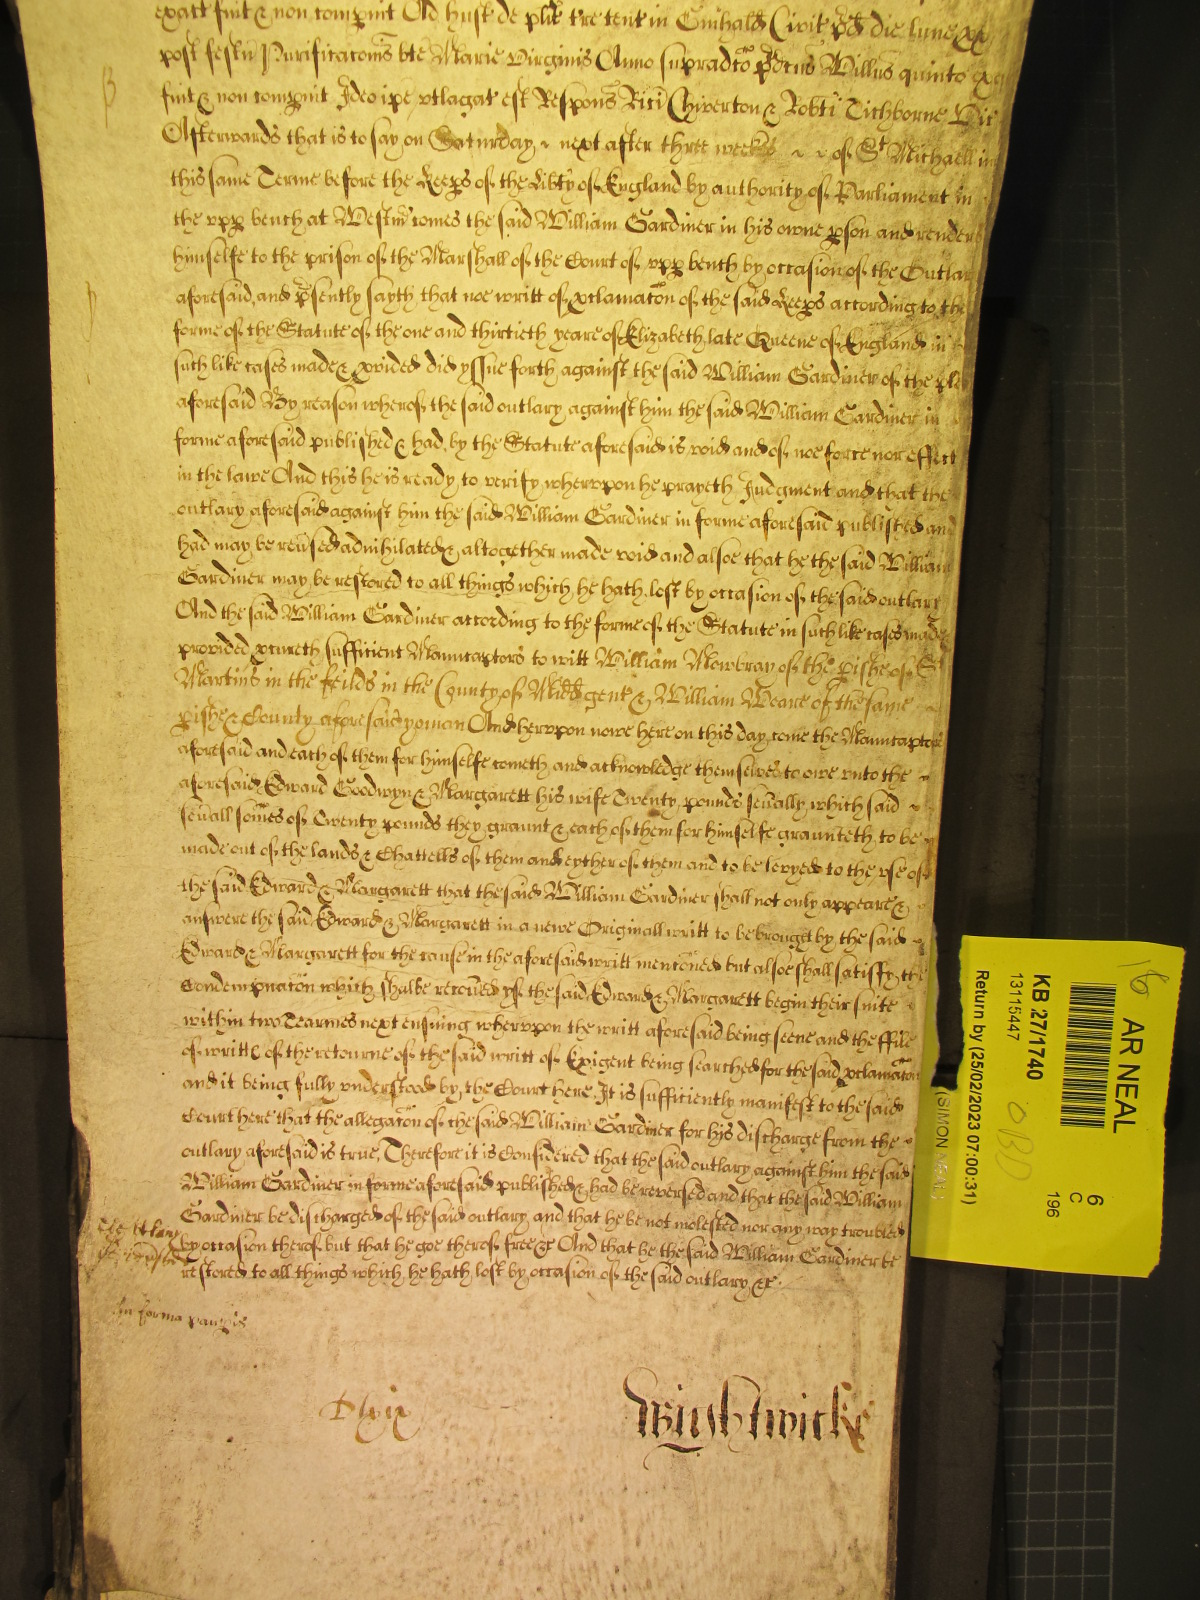 exact fuit & non comp̄uit Ad hust de pl̄it t̄re tent in Guihald Civit p̄d die lune px̄
post festū Purificac̄onis bt̄e Marie Virginis Anno supradc̄o p̄dcus Willus quinto exa
fuit & non comp̄uit Ideo ip̄e utlagat est Respons Rici Chiverton & Robti Tichborne Vic
Afterwards that is to say on Saturday ~ next after three weekes ~ ~ of St Michaell in
this same Terme before the Keeps of the Libty of England by authority of Parliament in
the vpp bench at Westm̄ comes the said William Gardiner in his owne pson and renders
himselfe to the prison of the Marshall of the Court of vpp bench by occasion of the Outlar
aforesaid, and p̄sently sayth that noe writt of pclamac̄on of the said Keeps according to the
forme of the Statute of the one and thirtieth yeare of Elizabeth late Queene of England in
such like cases made & pvided did yssue forth against the said William Gardiner of the ple
aforesaid By reason wherof the said outlary against him the said William Gardiner in
forme aforesaid published & had, by the Statute aforesaid is void and of noe force nor effect
in the lawe And this he is ready to verify whervpon he prayeth Judgment and that the
outlary aforesaid against him the said William Gardiner in forme aforesaid published and
had may be reūsed adnihilated & altogether made void and alsoe that he the said William
Gardiner may be restored to all things which he hath lost by occasion of the said outlary
And the said William Gardiner according to the forme of the Statute in such like cases made &
provided pcureth sufficient Manucaptors to witt William Mowbray of the pishe of St
Martins in the feilds in the County of Midd gent & William Weare of the same ~
pishe & County aforesaid yoman And hervpon nowe here on this day come the Manucaptors
aforesaid and each of them for himselfe cometh and acknowledge themselves to owe vnto the ~
aforesaid Edward Goodwyn & Margarett his wife Twenty pounds seūally which said ~
seūall som̄es of Twenty pounds they graunt & each of them for himselfe graunteth to be
made out of the lands & Chattells of them and eyther of them and to be levyed to the vse of
the said Edward & Margarett that the said William Gardiner shall not only appeare &
answere the said Edward & Margarett in a newe Originall writt to be brought by the said ~
Edward & Margarett for the cause in the aforesaid writt menc̄oned but alsoe shall satisfy the
Condempnac̄on which shalbe recoūed yf the said Edward & Margarett begin their suite ~
within two Tearmes next ensuing whervpon the writt aforesaid being seene and the ffile
of writts of the retourne of the said writt of Exigent being searched for the said pclamac̄on
and it being fully vnderstood by the Court here It is sufficiently manifest to the said
Court here that the allegac̄on of the said William Gardiner for his discharge from the ~
outlary aforesaid is true, Therefore it is Considered that the said outlary against him the said
William Gardiner in forme aforesaid published & had be reversed and that the said William
Gardiner be discharged of the said outlary and that he be not molested nor any way troubled
by occasion therof but that he goe therof free &c And that he the said William Gardiner be
restored to all things which he hath lost by occasion of the said outlary &c.
In forma paupis
Wightwicke
16
AR NEAL
KB 27/1740
13115447
Return by (25/02/2023 07:00:31)
(SIMON NEAL)
6
C
196